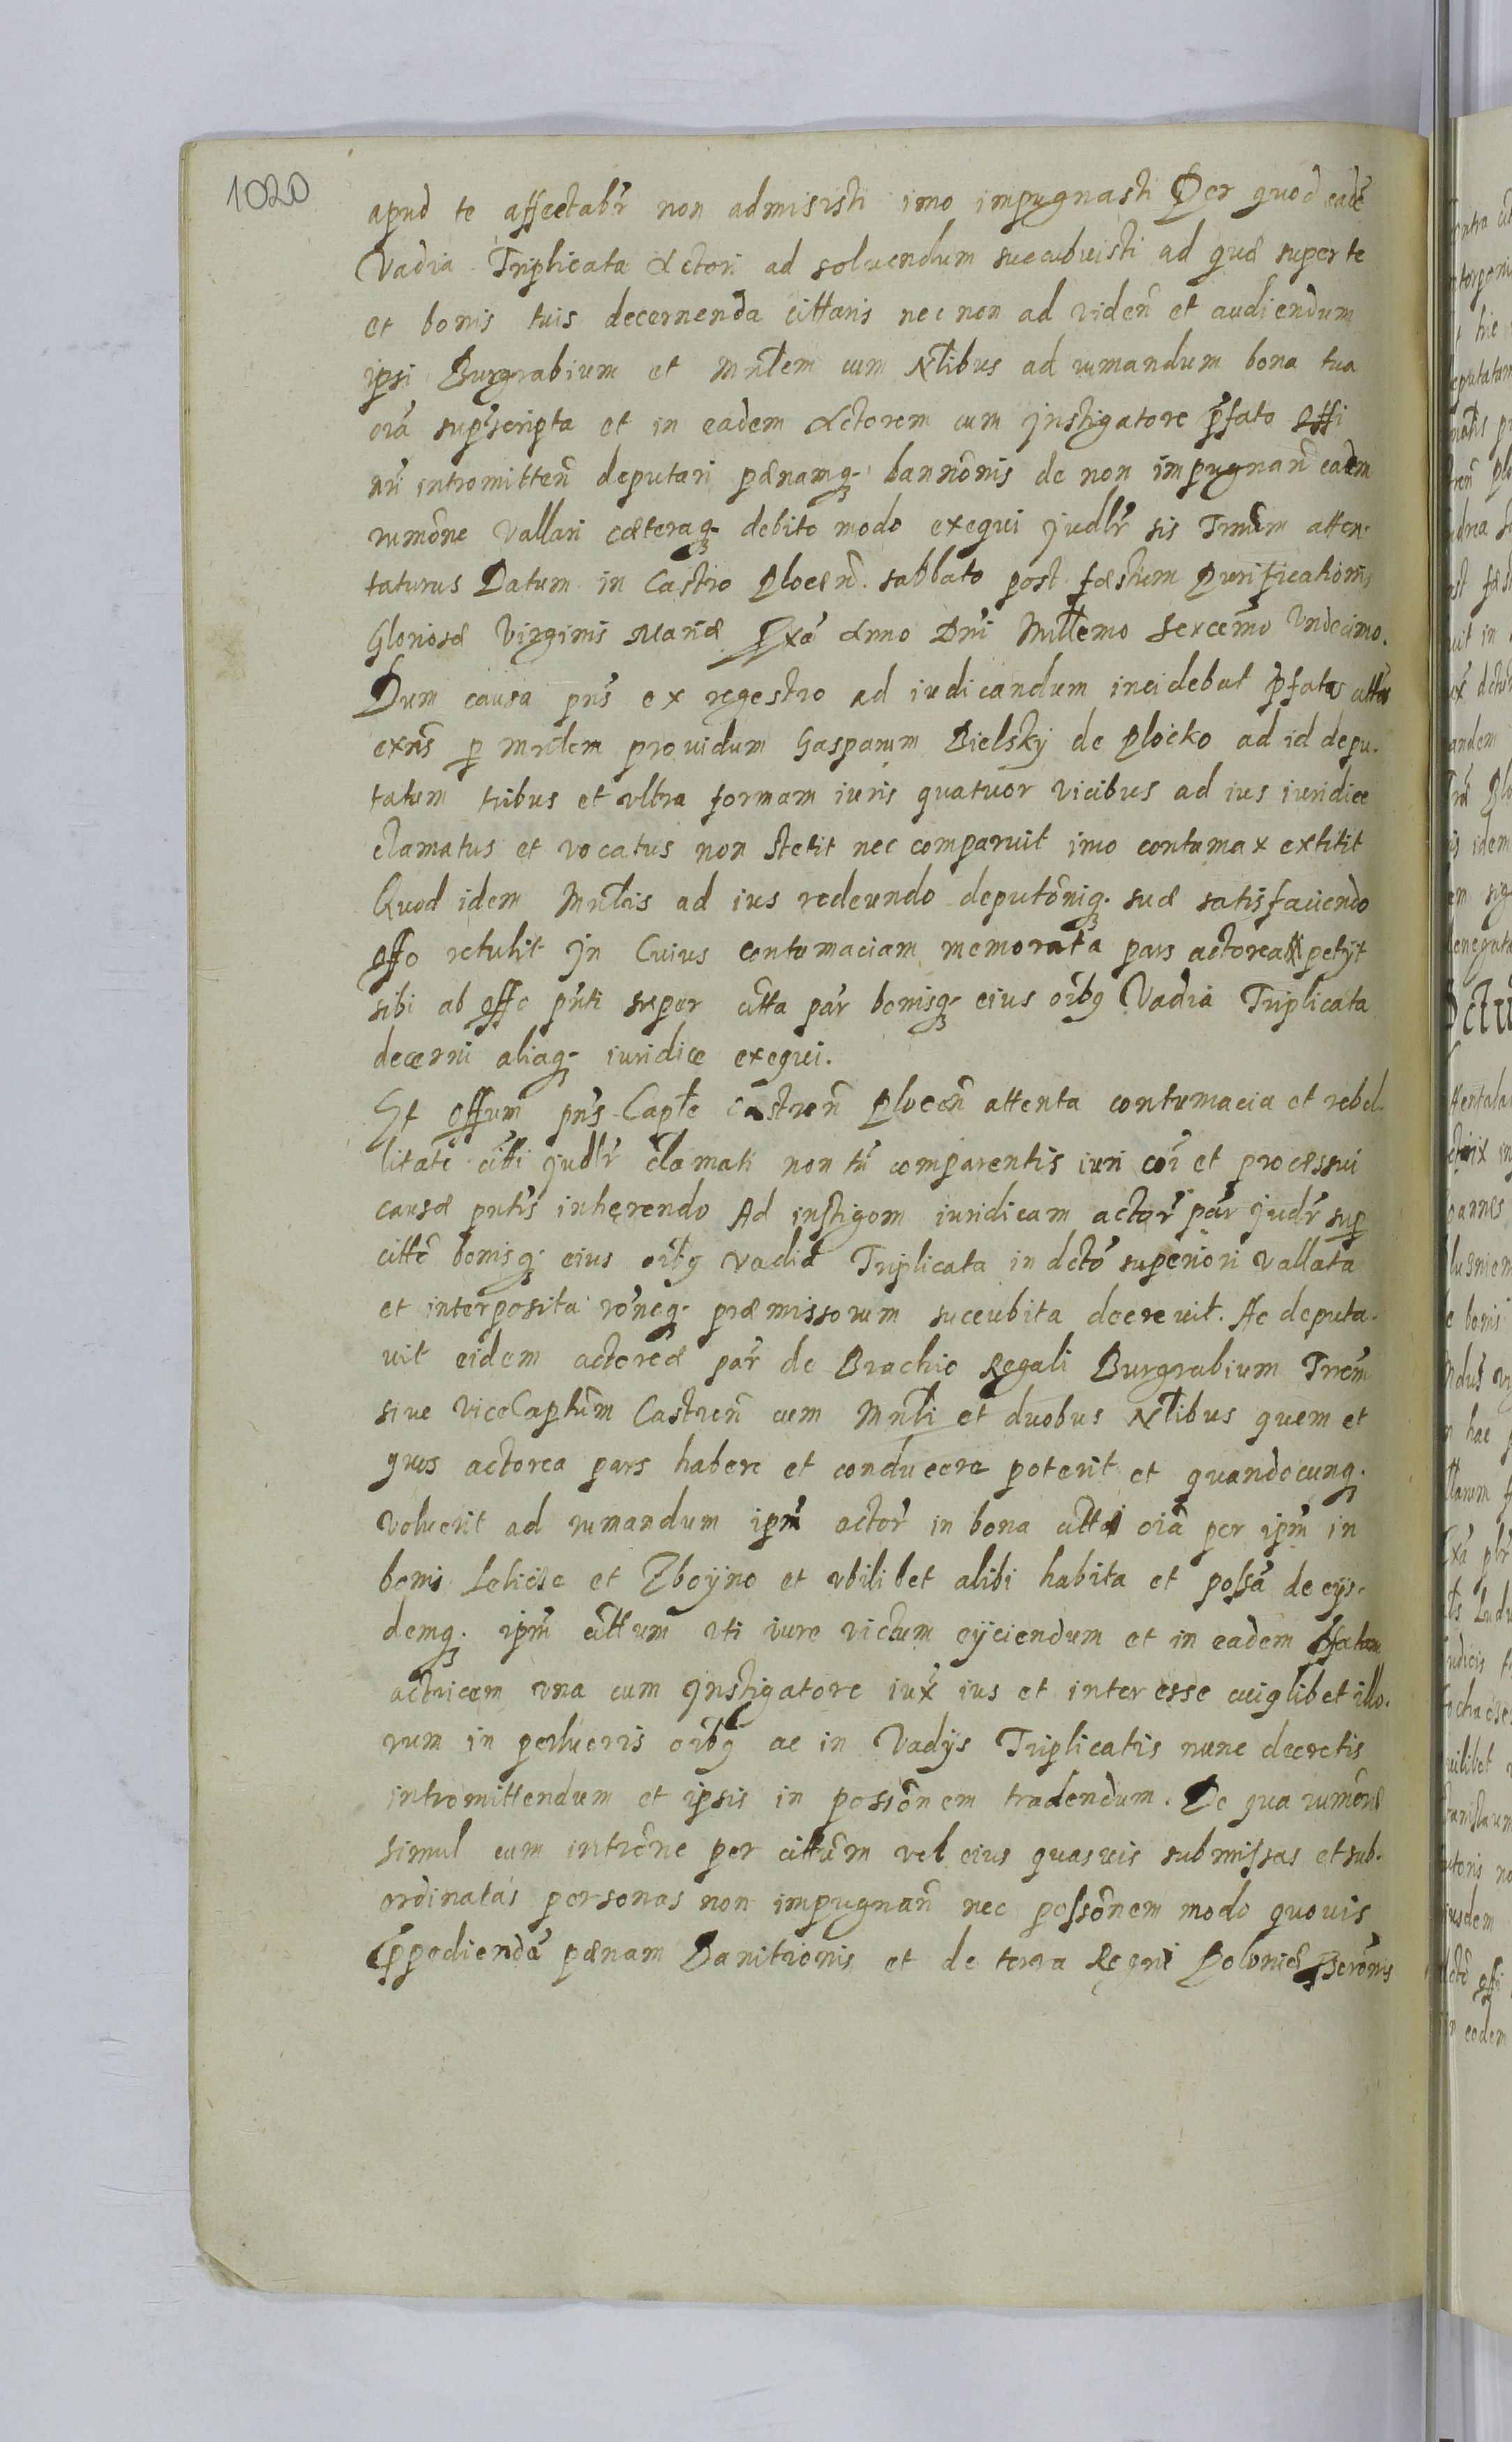 1020
apud te affectabr̃ non admisisti imo impugnasti Per quod eadẽ
Vadia Triplicata Actori ad soluendum succubuisti ad quæ super te
et bonis tuis decernenda cittaris nec non ad viden̄ et audiendum
ipsi Burgrabium et Mnĩlem cum Nl̃ibus ad rumandum bona tua
oĩa supscripta et in eadem Actorem cum Jnstigatore p̃fato Offi
nr̃i intromitten̄ deputari pænamq̨ bannõnis de non impugnan̄ eadem
rumõne Vallari cæteraq̨ debito modo exequi judl̃r sis Trm̃um atten-
taturus Datum in Castro Plocen̄. sabbato post fæstum Purificationis
Gloriosæ Virginis Mariæ Pxã Anno Dn̄i Mill̃emo Sexcẽmo Vndecimo.
Dum causa pñs ex regestro ad iudicandum incidebat p̃fatus citt̃us
exñs p Mnĩlem prouidum Gasparum Bielsky de Plocko ad id depu-
tatum tribus et vltra formam iuris quatuor vicibus ad ius iuridice
clamatus et vocatus non stetit nec comparuit imo contumax extitit
Quod idem Mnĩlis ad ius redeundo deputõniq̨ suæ satisfaciendo
offo retulit Jn Cuius contumaciam memorata pars actorea petijt
sibi ab offo pñti super citta par̃ bonisq̨ eius oĩbg Vadia Triplicata
decerni aliaq̨ iuridice exequi.
Et offium pñs Capl̃e Castren̄ Plocen̄ attenta contumacia et rebel-
litate citt̃i judl̃r clamati non tñ comparentis iuri cõi et processui
causæ pñtis inherendo Ad instigom iuridicam actor̃ par̃ judr̃ sup
citto bonisq̨ eius oĩbg vadia Triplicata in dcto superiori vallata
et interposita rõneq̨ præmissorum succubita decreuit. Ac deputa-
uit eidem actoreæ par̃ de Brachio Regali Burgrabium Trem̃
siue ViceCaptũm Castren̄ cum Mnĩli et duobus Nl̃ibus quem et
quos actorea pars habere et conducere poterit et quandocunq̨
voluerit ad rumandum ipm̃ actor̃ in bona citti oĩa per ipm̃ in
bonis Leliése et Zboyno et vbilibet alibi habita et possã de eijs-
demq̨ ipm̃ cittum vti iure victum eyciendum et in eadem p̃fatam
actricem vna cum Jnstigatore iux̃ ius et interesse cuiglibet illo-
rum in perlucris oĩbg ac in Vadijs Triplicatis nunc decretis
intromittendum et ipsis in possõnem tradendum. De qua rumõne
simul cum intrõne per cittũm vel eius quasuis submissas et sub-
ordinatas personas non impugnan̄ nec possõnem modo quouis
p̃pediendã pænam Banitionis et de terra Regni Poloniæ